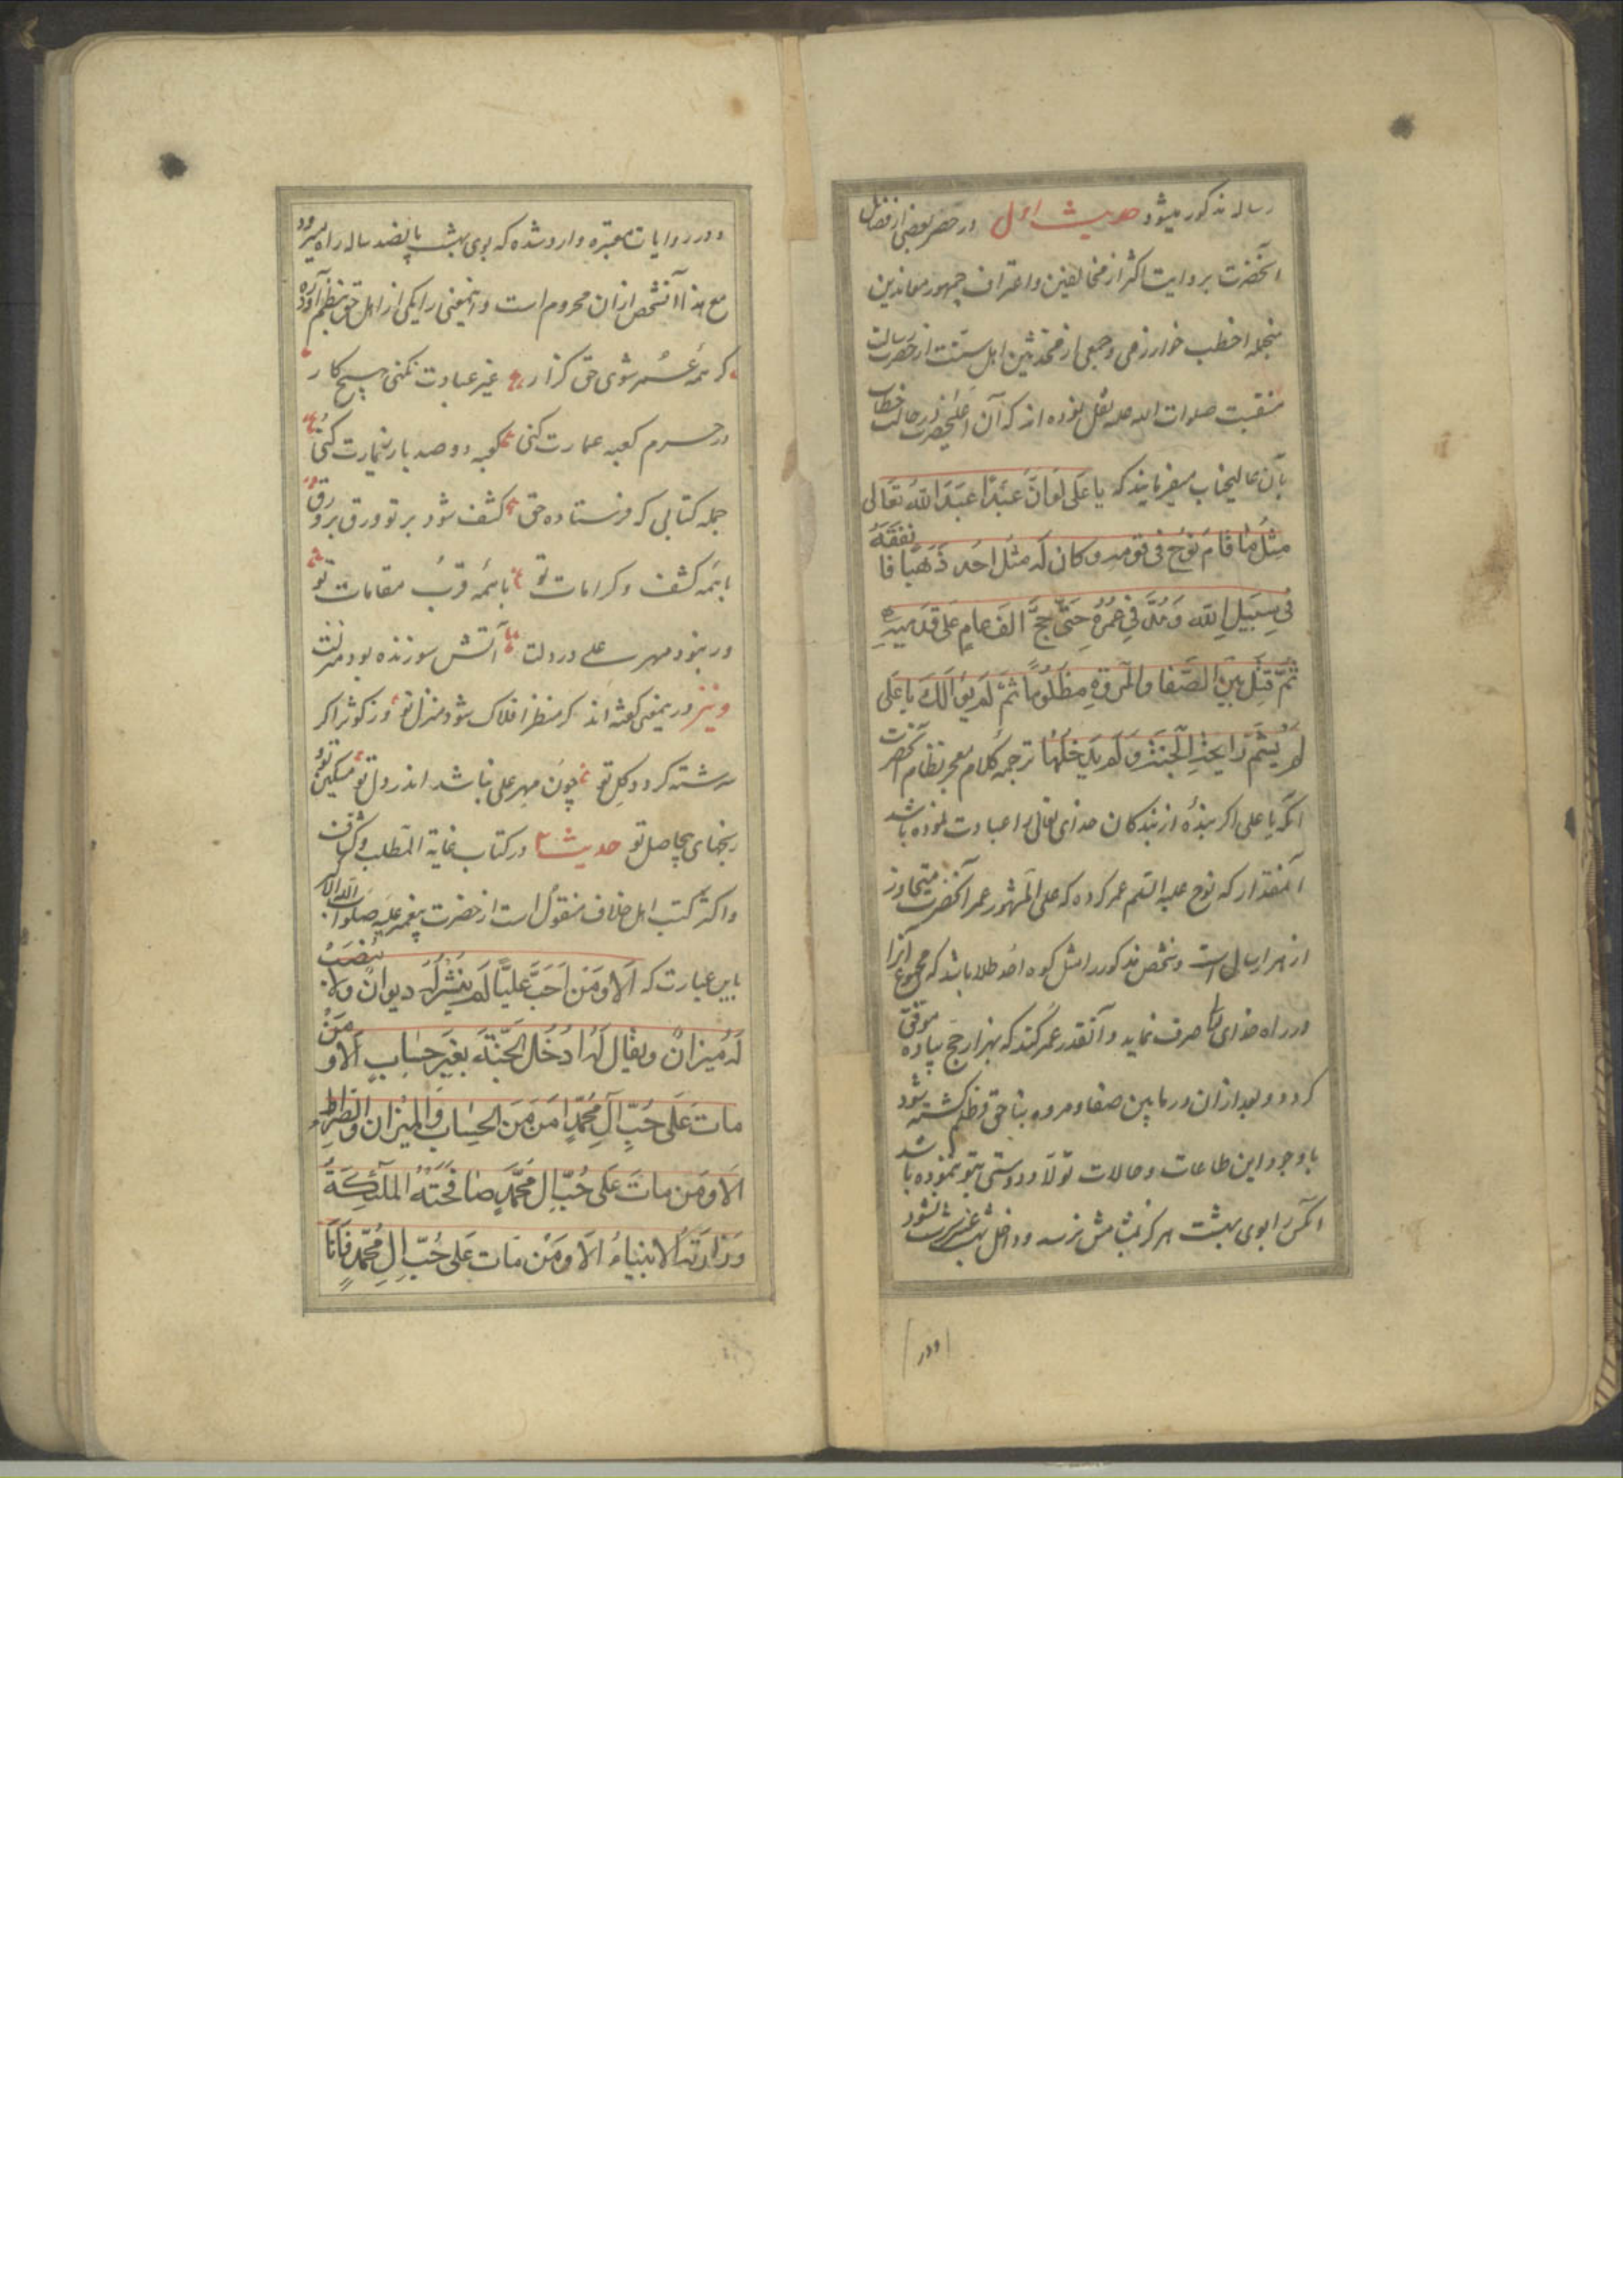 رساله مذکور میشود حدیث اول در حصر بعضی از فضائل
آنحضرت بروایت اکثر از مخالفین و اعتراف جمهور معاندین
منجمله اخطب خوارزمی و جمعی از محدثین اهل سنت از حضرت رسالت
منقبت صلوات الله علیه نقل نموده اند که آن اعلیحضرت در حالت خطاب
بآن عالیجناب میفرمایند که یا علی لو ان عبدا عبد الله تعالی
مثل ما قام نوح فی قومه و کان له مثل احد ذهبا فانفقه
فی سبیل الله و مد فی عمره حتی حج الف عام علی قدمیه
ثم قتل بین الصفا و المروة مظلوما ثم لم یوالک یا علی
لم یشم رایحة الجنة و لم یدخلها ترجمه کلام معجز نظام آنحضرت
آنکه یا علی اگر بنده از بندکان خدای تعالی را عبادت نموده باشد
آنمقدار که نوح علیه السلم عمر کرده که علی المشهور عمر آنحضرت متجاوز
از هزار سال است و شخص مذکور را مثل کوه احد طلا باشد که مجموع آنرا
در راه خدای تعالی صرف نماید و آنقدر عمر کند که بهزار حج پیاده موفق
کردد و بعد از آن در ما بین صفا و مروه بناحق و ظلم کشته شود
با وجود این طاعات و حالات تولا و دوستی بتو ننموده باشد
آنکس را بوی بهشت هرکز بمشامش نرسد و داخل بهشت عنبر سرشت نشود
ودر
و در روایات معتبره وارد شده که بوی بهشت پانصد ساله راه میرود
مع هذا آنشخص از ان محروم است و اینمعنی را یکی از اهل حق بنظم آورده
کر همه عمر شوی حق کزار غیر عبادت نکنی هیچ کار
در حرم کعبه عمارت کنی کعبه دو صد بار زیارت کنی
جمله کتابی که فرستاده حق کشف شود بر تو ورق بر ورق
با همه کشف و کرامات تو با همه قرب مقامات تو
ور نبود مهر علی در دلت آتش سوزنده بود منزلت
و نیز در یمعنی کفته اند کر منظر افلاک شود منزل تو وز کوثر اکر
سرشته کردد کل تو چون مهر علی نباشد اندر دل تو مسکین تو
رنجهای بیحاصل تو حدیث ۲ در کتاب غایة المطلب و کشاف
و اکثر کتب اهل خلاف منقول است از حضرت پیغمبر علیه صلوات الله
باین عبارت که الا و من احب علیا لم ینشر له دیوان و لا ینصب
له میزان و یقال له ادخل الجنة بغیر حساب الا و من
مات علی حب آل محمد امن من الحساب و المیزان و الصراط
الا و من مات علی حب ال محمد صافحته الملئکة
و زارته الانبیاء الا و من مات علی حب ال محمد فانا